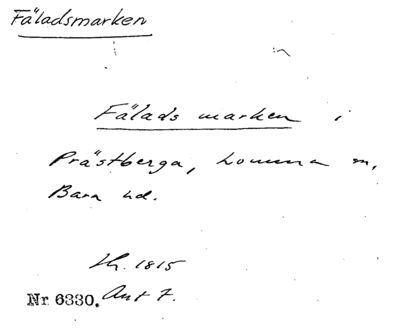 Fäladsmarken
Fälads marken i
Prästberga, Lomma m,
Bara hd.
Nr 6330. Ant 7.